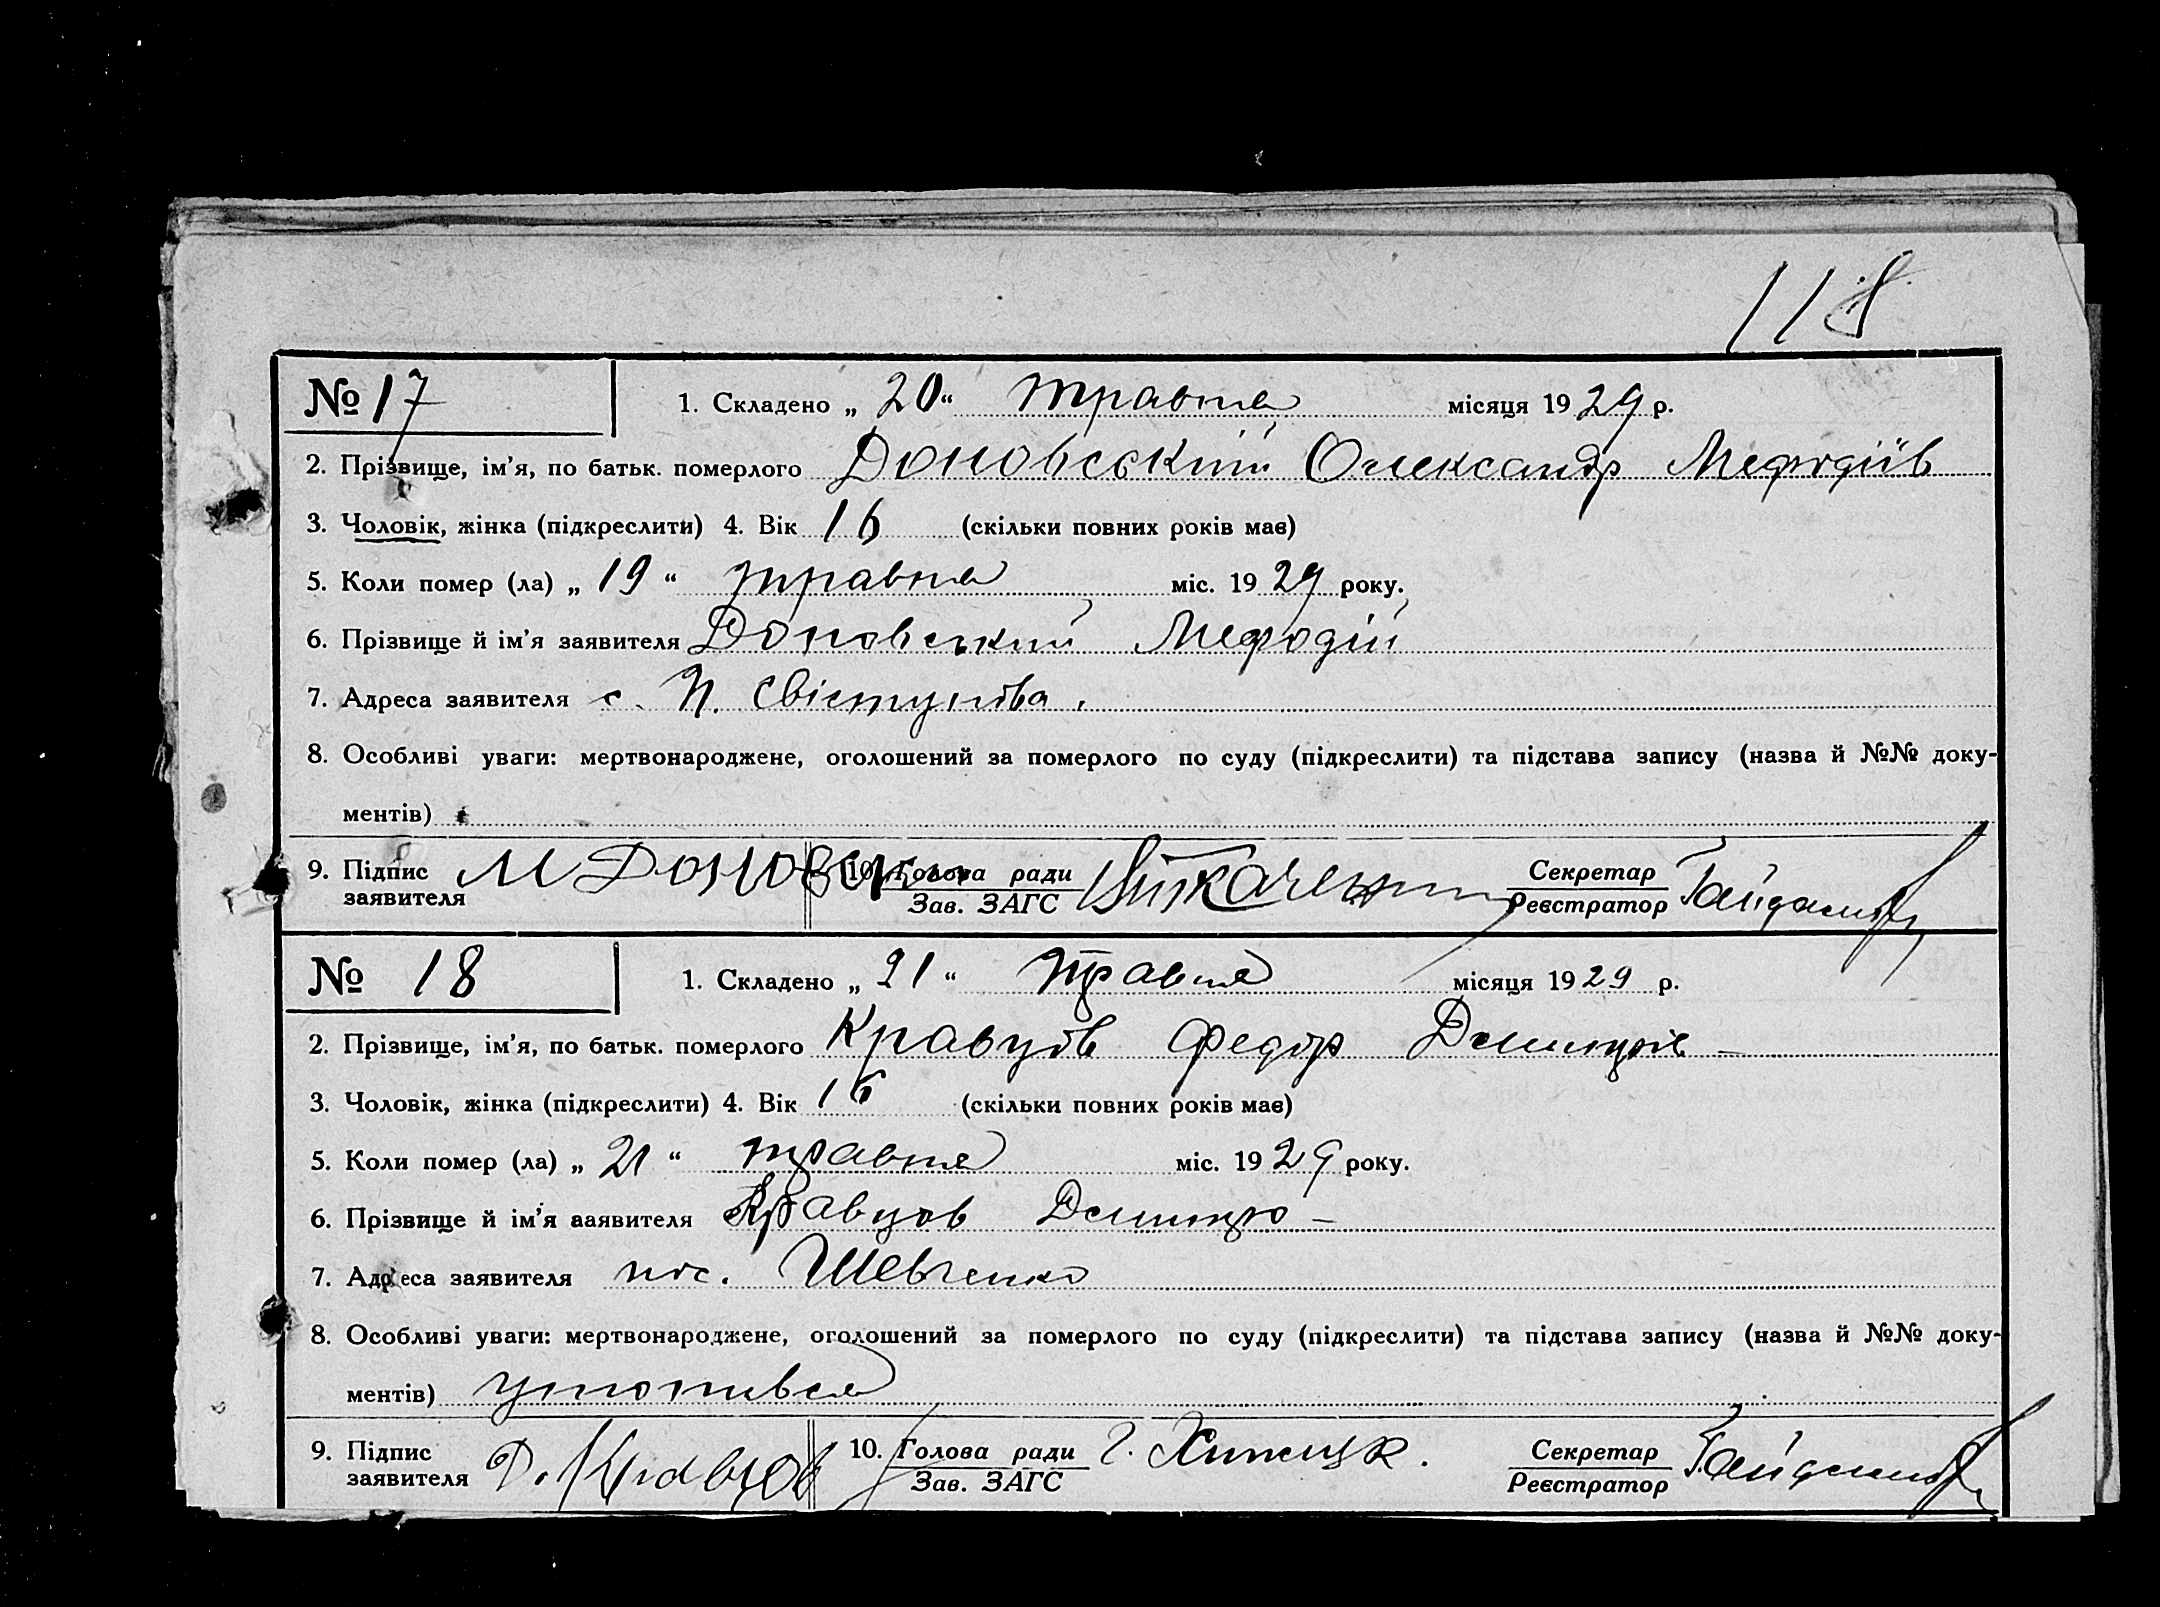 118
№ 17 1. Складено „ 20 “ травня місяця 19 29 р.
2. Прізвище, ім'я, по батьк. померлого Доновський Олександр Мефодіїв
3. Чоловік, жінка (підкреслити) 4. Вік 16 (скільки повних років має)
5. Коли помер (ла) „ 19 “ травня міс. 19 29 року.
6. Прізвище й ім'я заявителя Доновський Мефодій
7. Адреса заявителя с. П. Свістунова.
8. Особливі уваги: мертвонароджене, оголошений за померлого по суду (підкреслити) та підстава запису (назва й №№ доку-
ментів)
9. Підпис М Донов 10. Голова ради Ткаченко Секретар
заявителя Зав. ЗАГС Реєстратор
№ 18 1. Складено „ 21 “ травня місяця 19 29 р.
2. Прізвище, ім'я, по батьк. померлого Кравцов Федір Дмитрів –
3. Чоловік, жінка (підкреслити) 4. Вік 16 (скільки повних років має)
5. Коли помер (ла) „ 21 “ травня міс. 19 29 року.
6. Прізвище й ім'я заявителя Кравцов Дмитро –
7. Адреса заявителя пос. Шевченко
8. Особливі уваги: мертвонароджене, оголошений за померлого по суду (підкреслити) та підстава запису (назва й №№ доку-
ментів) утопився
9. Підпис Д. Кравцов 10. Голова ради Секретар
заявителя Зав. ЗАГС Реєстратор